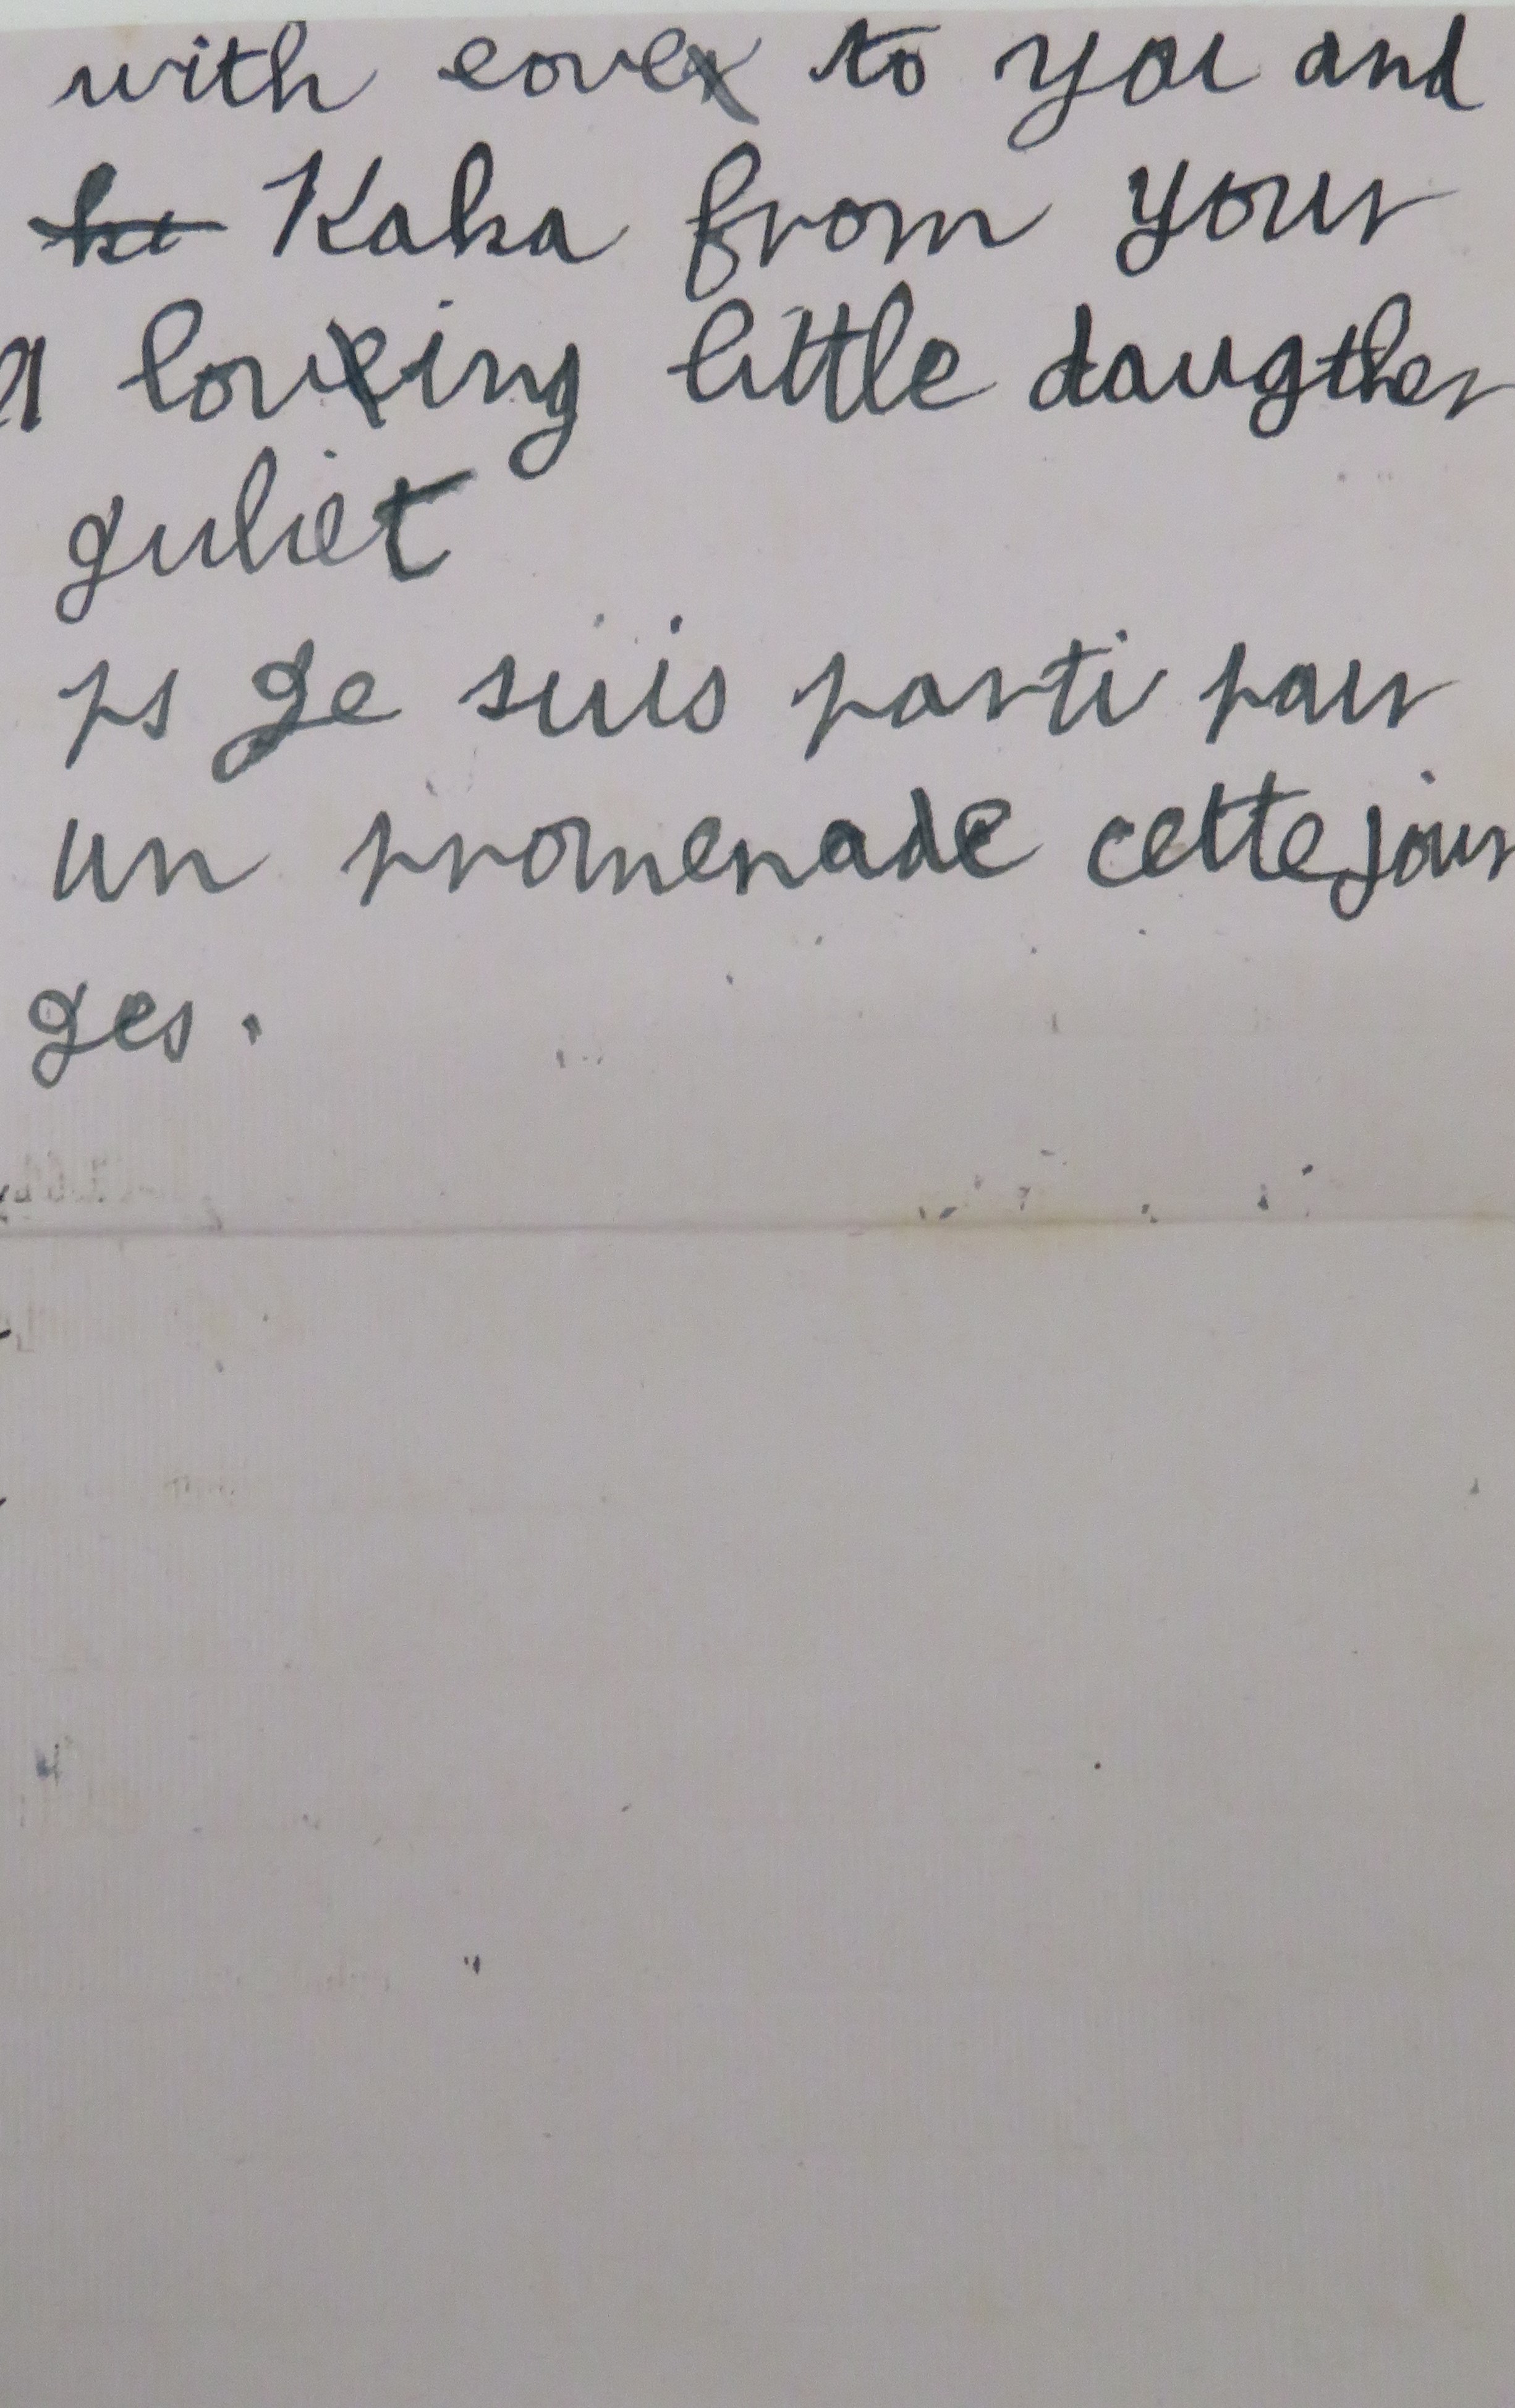 with love to you and
Kaka from your
loving little daugther
Juliet
ps Je suis parti pour
un promenade cette jour
ges.